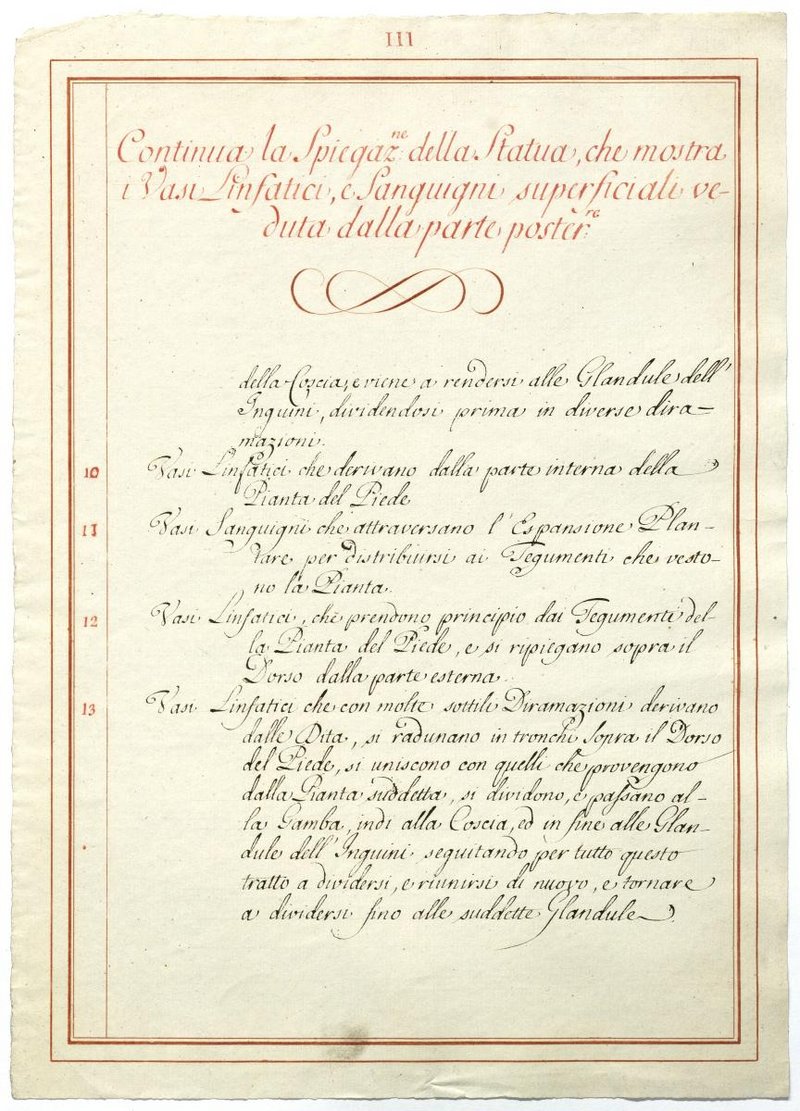 III
Continua la Spiegaz.ne della Statua, che mostra
i Vasi Linfatici, e Sanguigni superficiali ve-
duta dalla parte poster.re
della Coscia, e viene a rendersi alle Glandule dell'
Inguini, dividendosi prima in diverse dira-
mazioni.
10 Vasi Linfatici che derivano dalla parte interna della
Pianta del Piede
11 Vasi Sanguigni che attraversano l'Espansione Plan-
tare per distribiursi ai Tegumenti che vesto-
no la Pianta.
12 Vasi Linfatici, che prendono principio dai Tegumenti del-
la Pianta del Piede, e si ripiegano sopra il
Dorso dalla parte esterna.
13 Vasi Linfatici che con molte sottili Diramazioni derivano
dalle Dita, si radunano in tronchi sopra il Dorso
del Piede, si uniscono con quelli che provengono
dalla Pianta suddetta, si dividono, e passano al-
la Gamba, indi alla Coscia, ed in fine alle Glan-
dule dell'Inguini seguitando per tutto questo
tratto a dividersi, e riunirsi di nuovo, e tornare
a dividersi fino alle suddette Glandule.